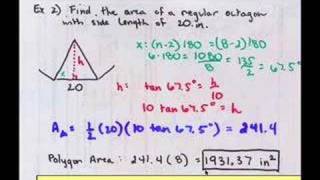 Ex 2) Find the area of a regular octagon
with side length of 20 in.
x: (n-2)180 = (8-2)180
6·180 = 1080/8 = 135/2 = 67.5°
h
x
20
h: tan 67.5° = h/10
10 tan 67.5° = h
A△ = 1/2 (20)(10 tan 67.5°) = 241.4
Polygon Area: 241.4(8) = 1931.37 in²